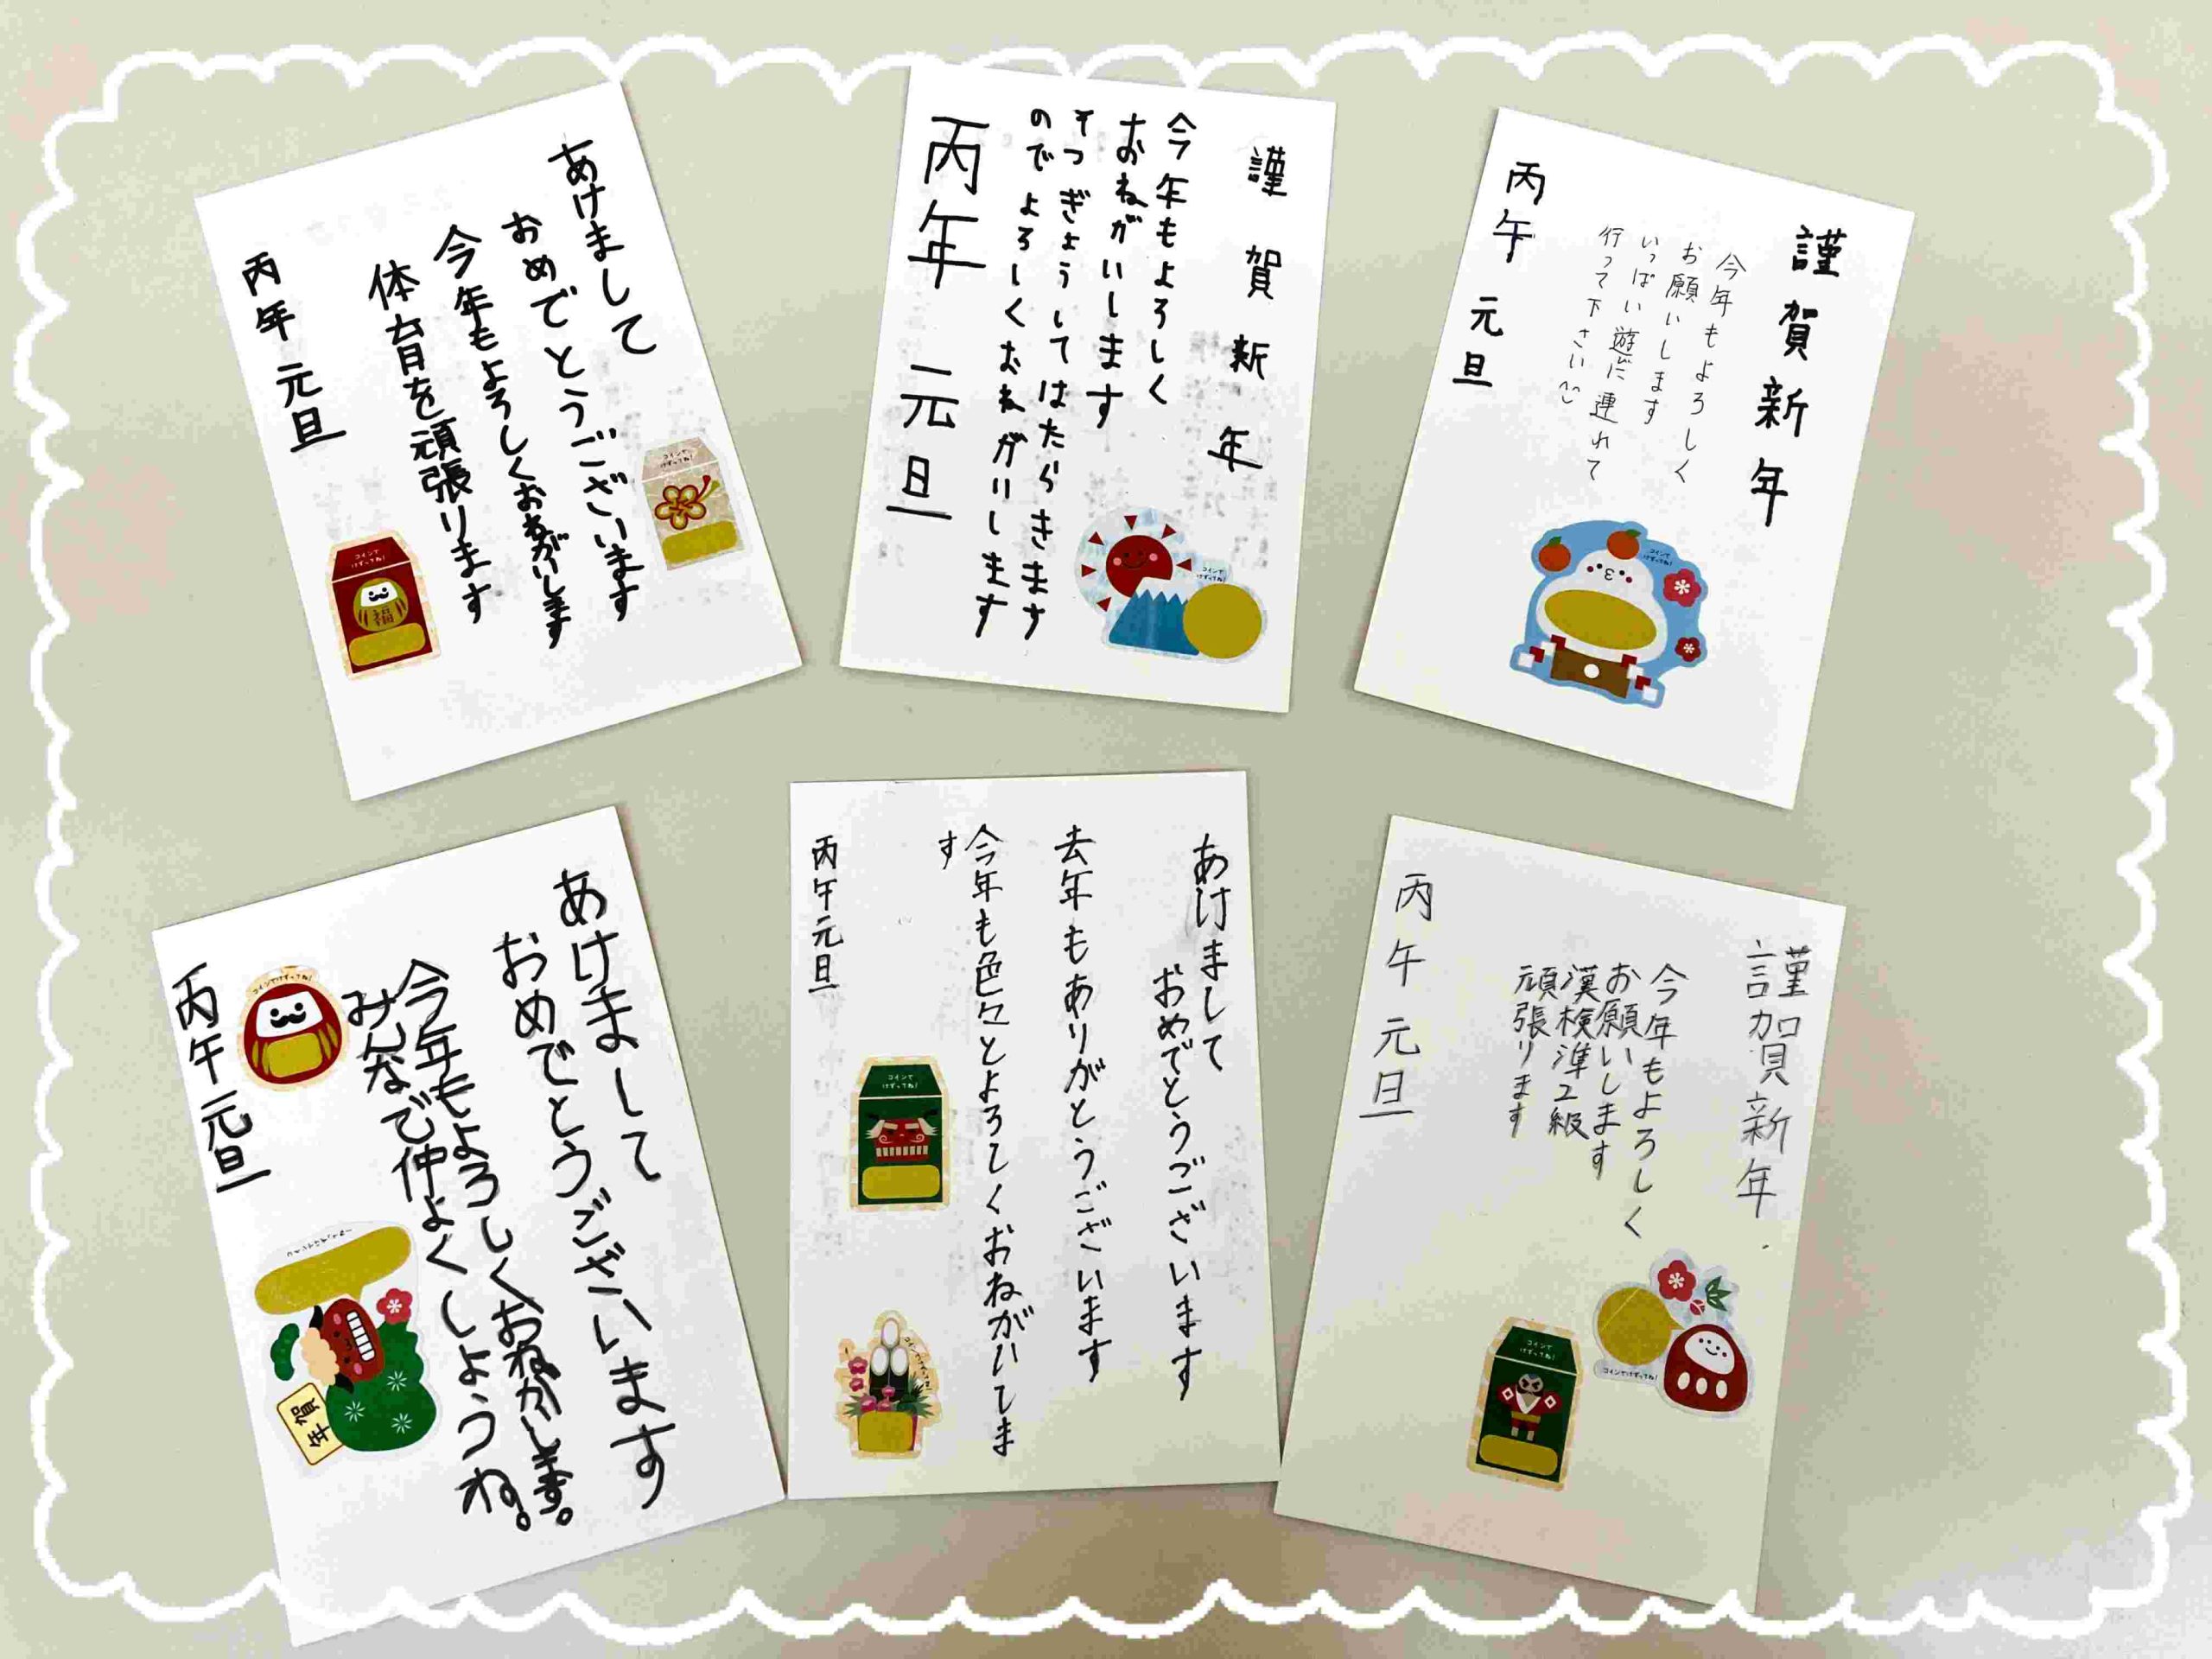 あけまして
おめでとうございます
今年もよろしくおねがいします
体育を頑張ります
丙年 元旦
コインで
けずってね!
コインで
けずってね!
福
謹賀新年
今年もよろしく
おねがいします
そつぎょうしてはたらきます
のでよろしくおねがいします
丙年 元旦
コインで
けずってね!
謹賀新年
今年もよろしく
お願いします
いっぱい遊びに連れて
行って下さい^^
丙午 元旦
コインで
けずってね!
あけまして
おめでとうございます
今年もよろしくおねがいします。
みんなで仲よくしょうね。
丙午元旦
コインでけずってね!
賀
年
あけまして
おめでとうございます
去年もありがとうございます
今年も色々とよろしくおねがいしま
す
丙午元旦
コインで
けずってね!
コインでけずってね!
謹賀新年
今年もよろしく
お願いします
漢検準2級
頑張ります
丙午 元旦
コインでけずってね!
コインで
けずってね!